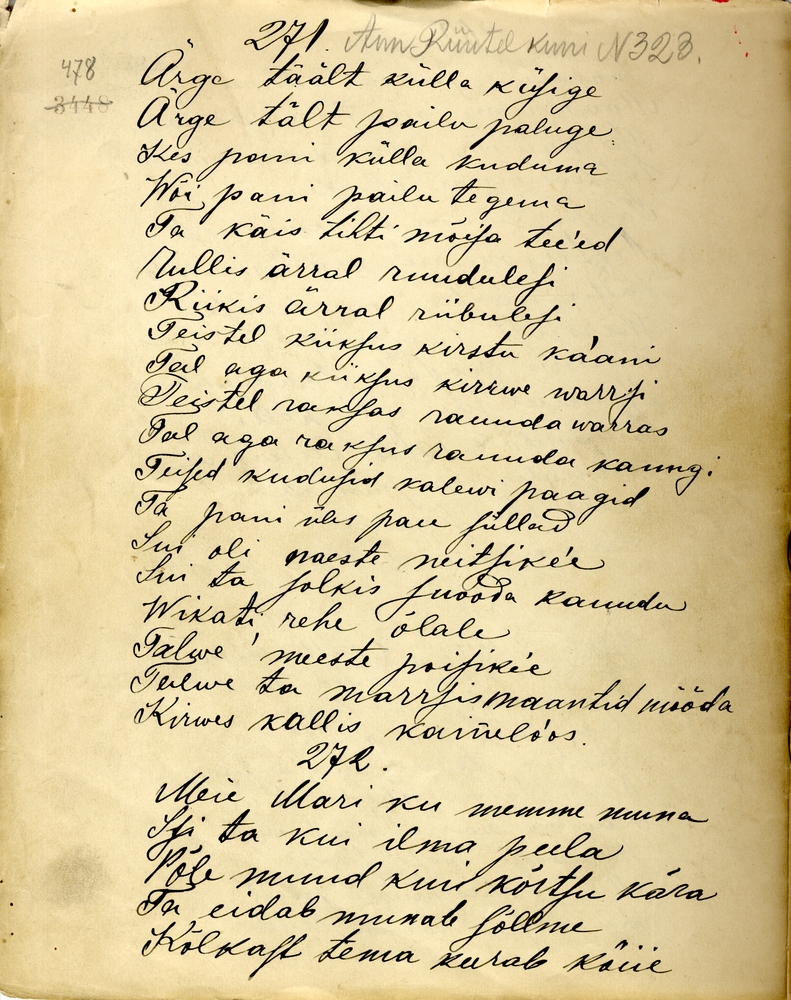 271. Ann Rüütel kuni N 323.
478
3448
Ärge täält külla küsige
Ärge tält pailu paluge
Kes pani külla kuduma
Wõi pani pailu tegema
Ta käis tihti mõisa tee'ed
Rullis ärral ruudulesi
Riikis ärral riibulesi
Teistel kiiksus kirstu kääni
Tal aga kiiksus kirrwe warrsi
Teistel raksas rauuda warras
Tal aga raksus rauuda kanngi
Teised kudusid kalewi paagid
Ta pani üks pau süllad
Sui oli naeste neitsike'e
Sui ta solkis suooda kauudu
Wikati rehe õlale
Talwe meeste poisike'e
Talwe ta marrsis maantid mööda
Kirwes kallis kain̄elo'os.
272.
Meie Mari ku memme muna
Isi ta kui ilma peela
Põle muud kui kõrtsu kära
Ta eidab munab söllme
Kõlkast tema keerab köiie